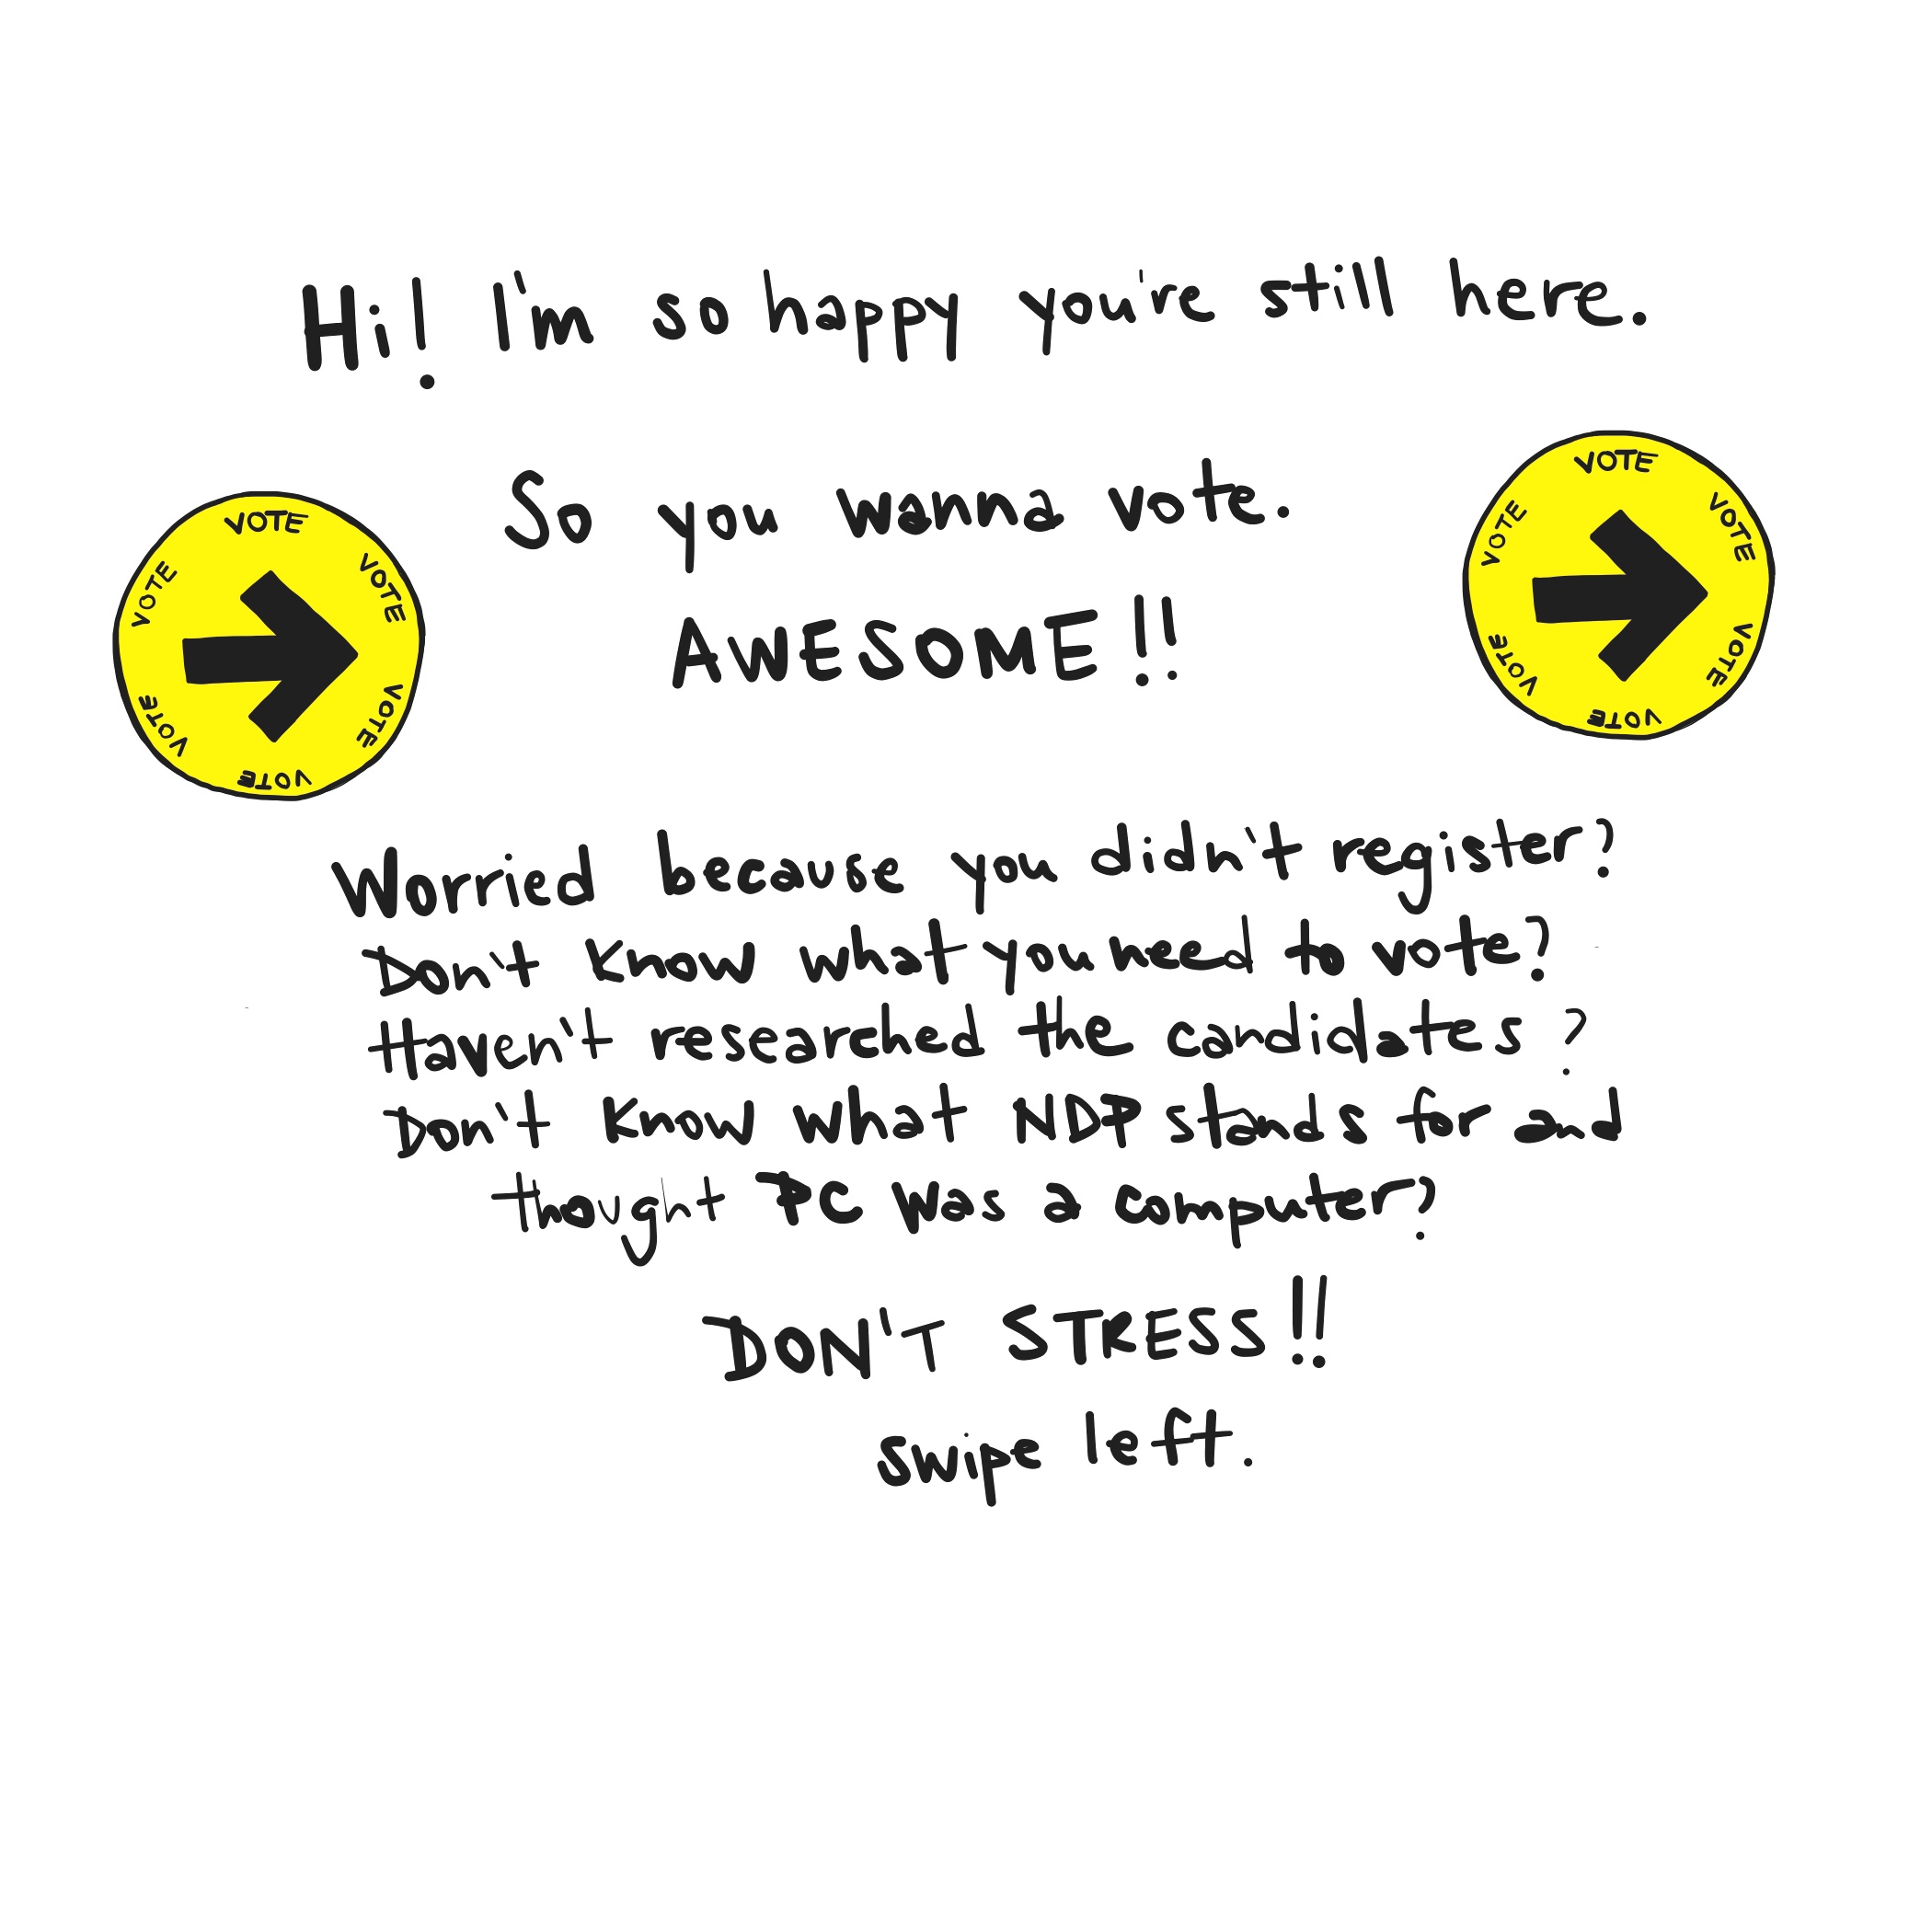 Hi! I'm so happy you're still here.
So you wanna vote.
AWESOME!!
VOTE VOTE VOTE VOTE VOTE VOTE
VOTE VOTE VOTE VOTE VOTE VOTE
Worried because you didn't register?
Don't know what you need to vote?
Haven't researched the candidates?
Don't know what NDP stands for and
thought PC was a computer?
DON'T STRESS!!
swipe left.